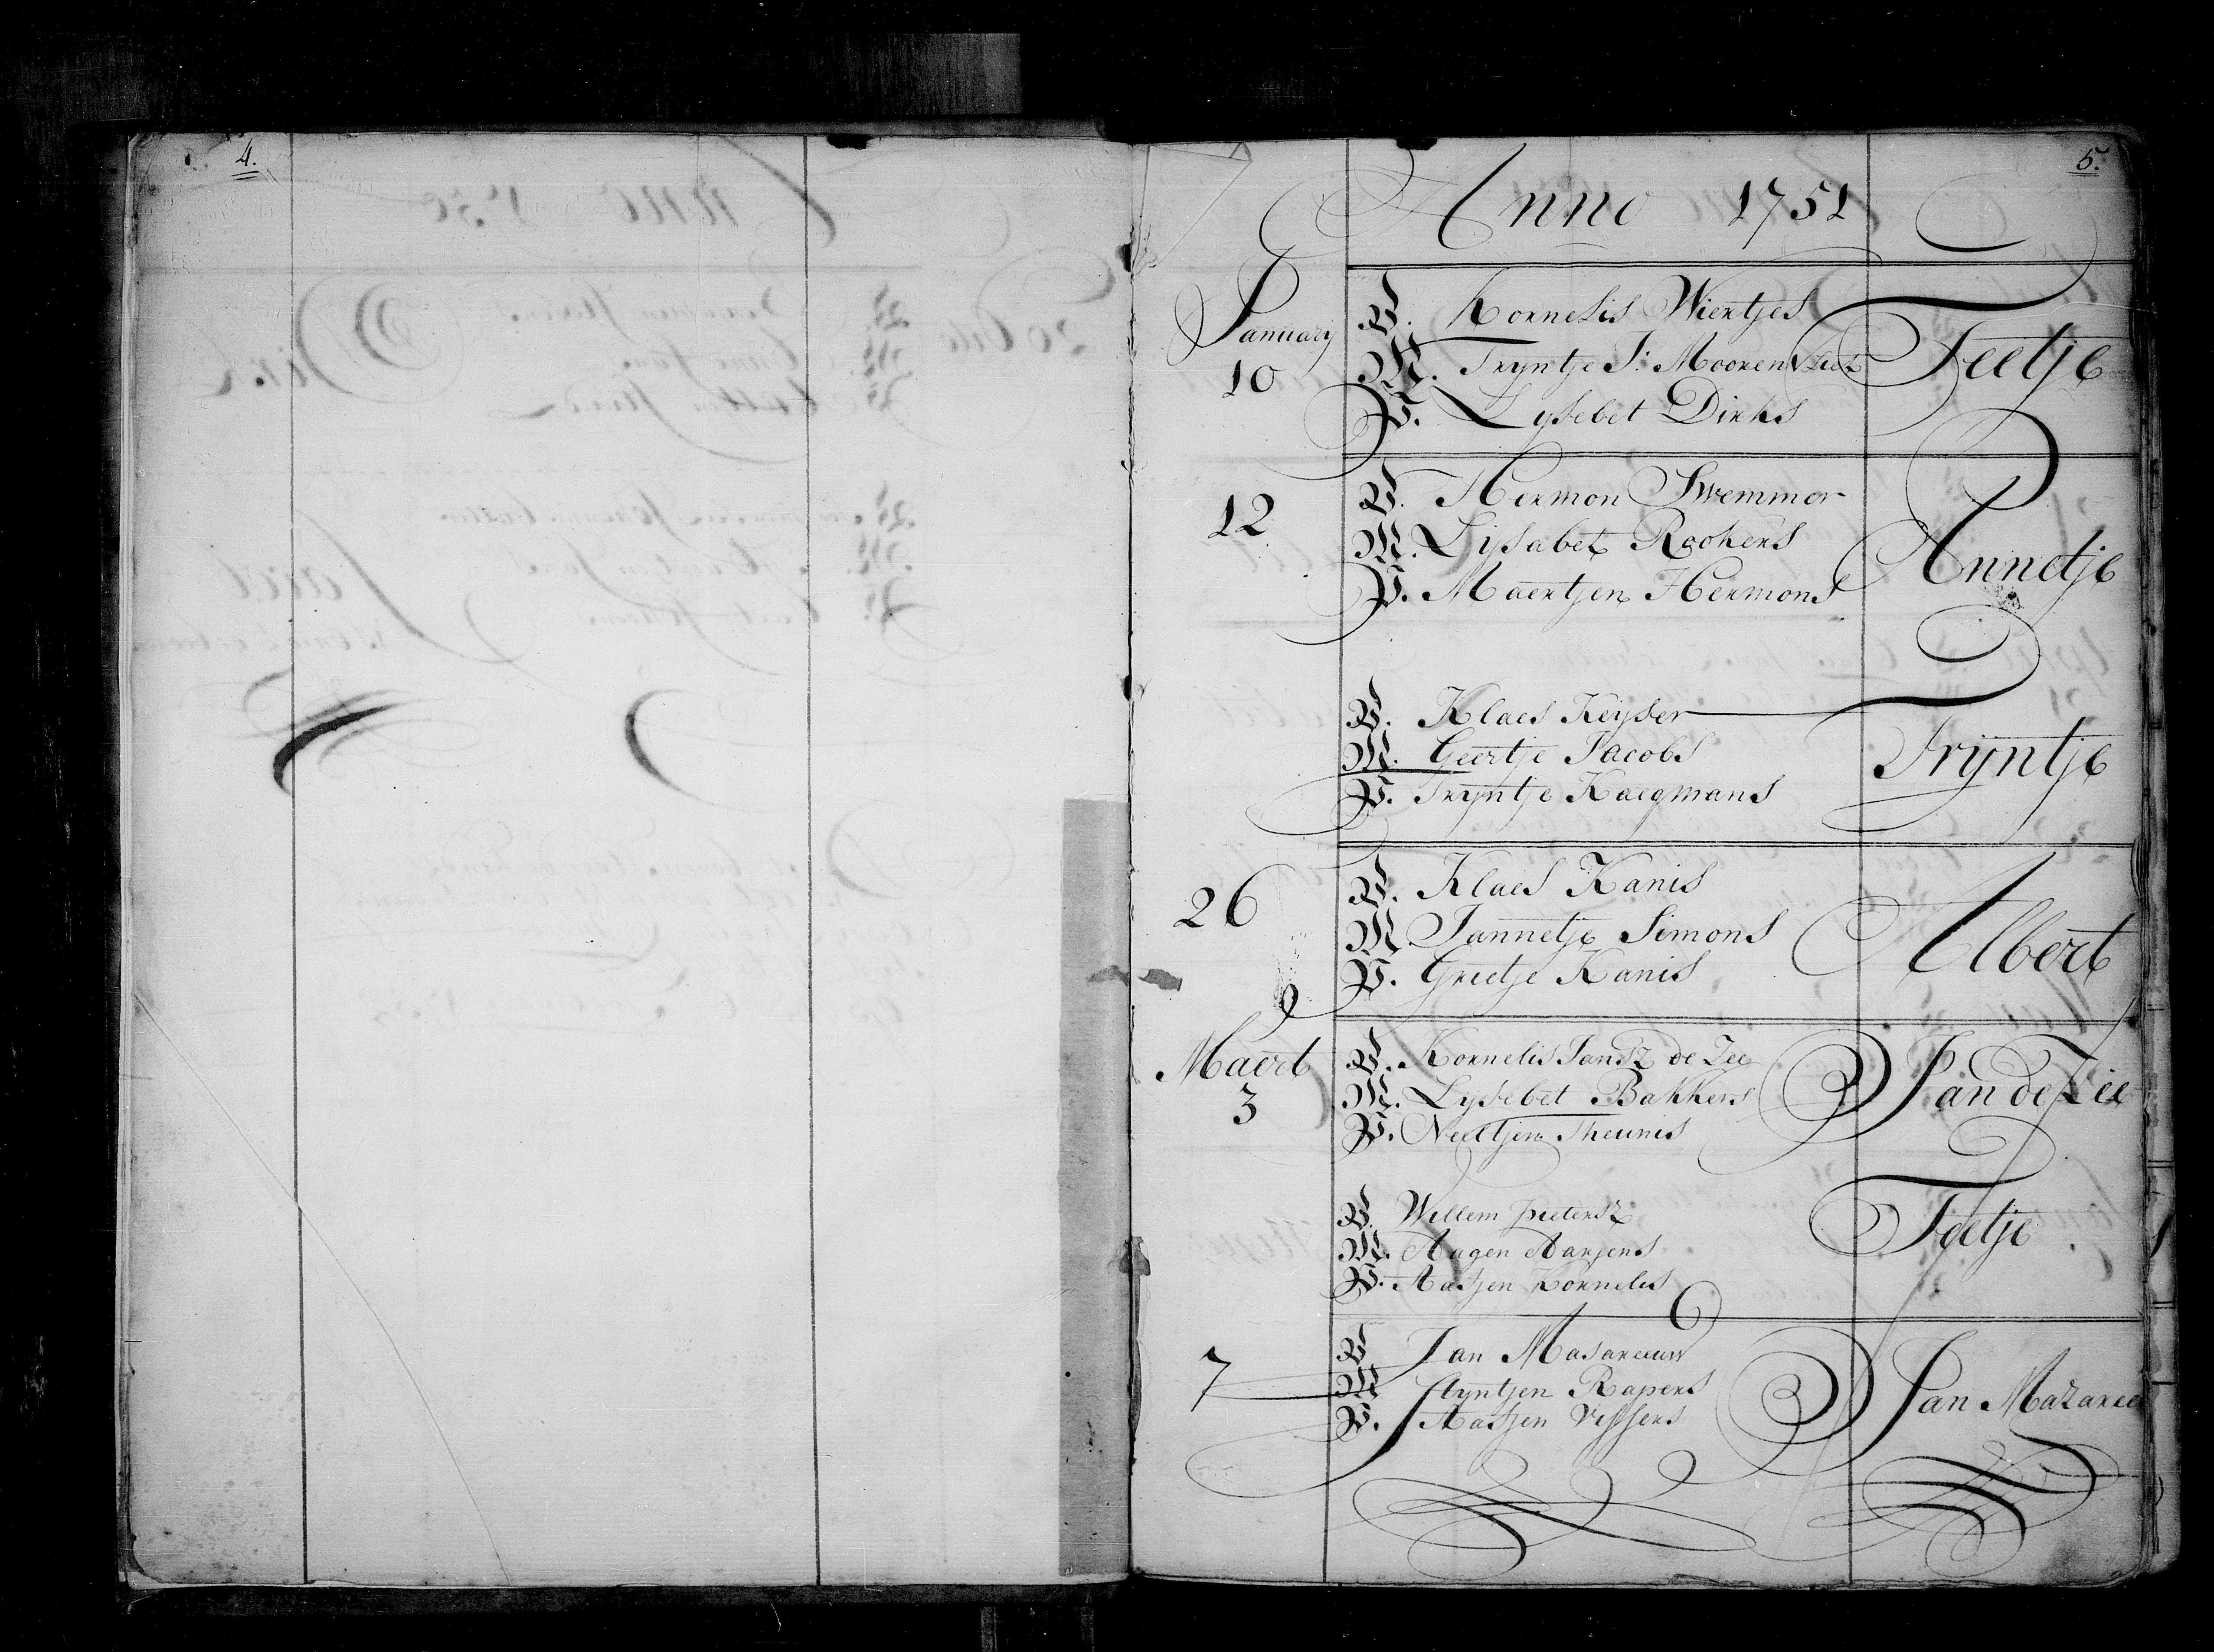 4.
5.
Anno 1751
January
10
V. Kornelis Wiertjes
M. Tryntje J: Moorenvliet
P. Lysebet Dirks
Feetje
12
V. Hermon Swemmer
M. Lysabet Rookers
P. Maertjen Hermons
Annetje
V. Klaes Keyser
M. Geertje Jacobs
P. Tryntje Kaegmans
Trijntje
26
V. Klaes Kanis
M Jannetje Simons
P. Grietje Kanis
Albert
Maert
3
V. Kornelis Jansz de Zee
M. Lysebet Bakkers
P. Neeltjen Theunis
Jan de Zee
V. Willem pietersz
M. Aagen Aarjens
P. Aatjen Kornelis
Feetje
7
V Jan Masareeuw
M Styntjen Rapers
P. Aatjen Vissers
Jan Mazaree